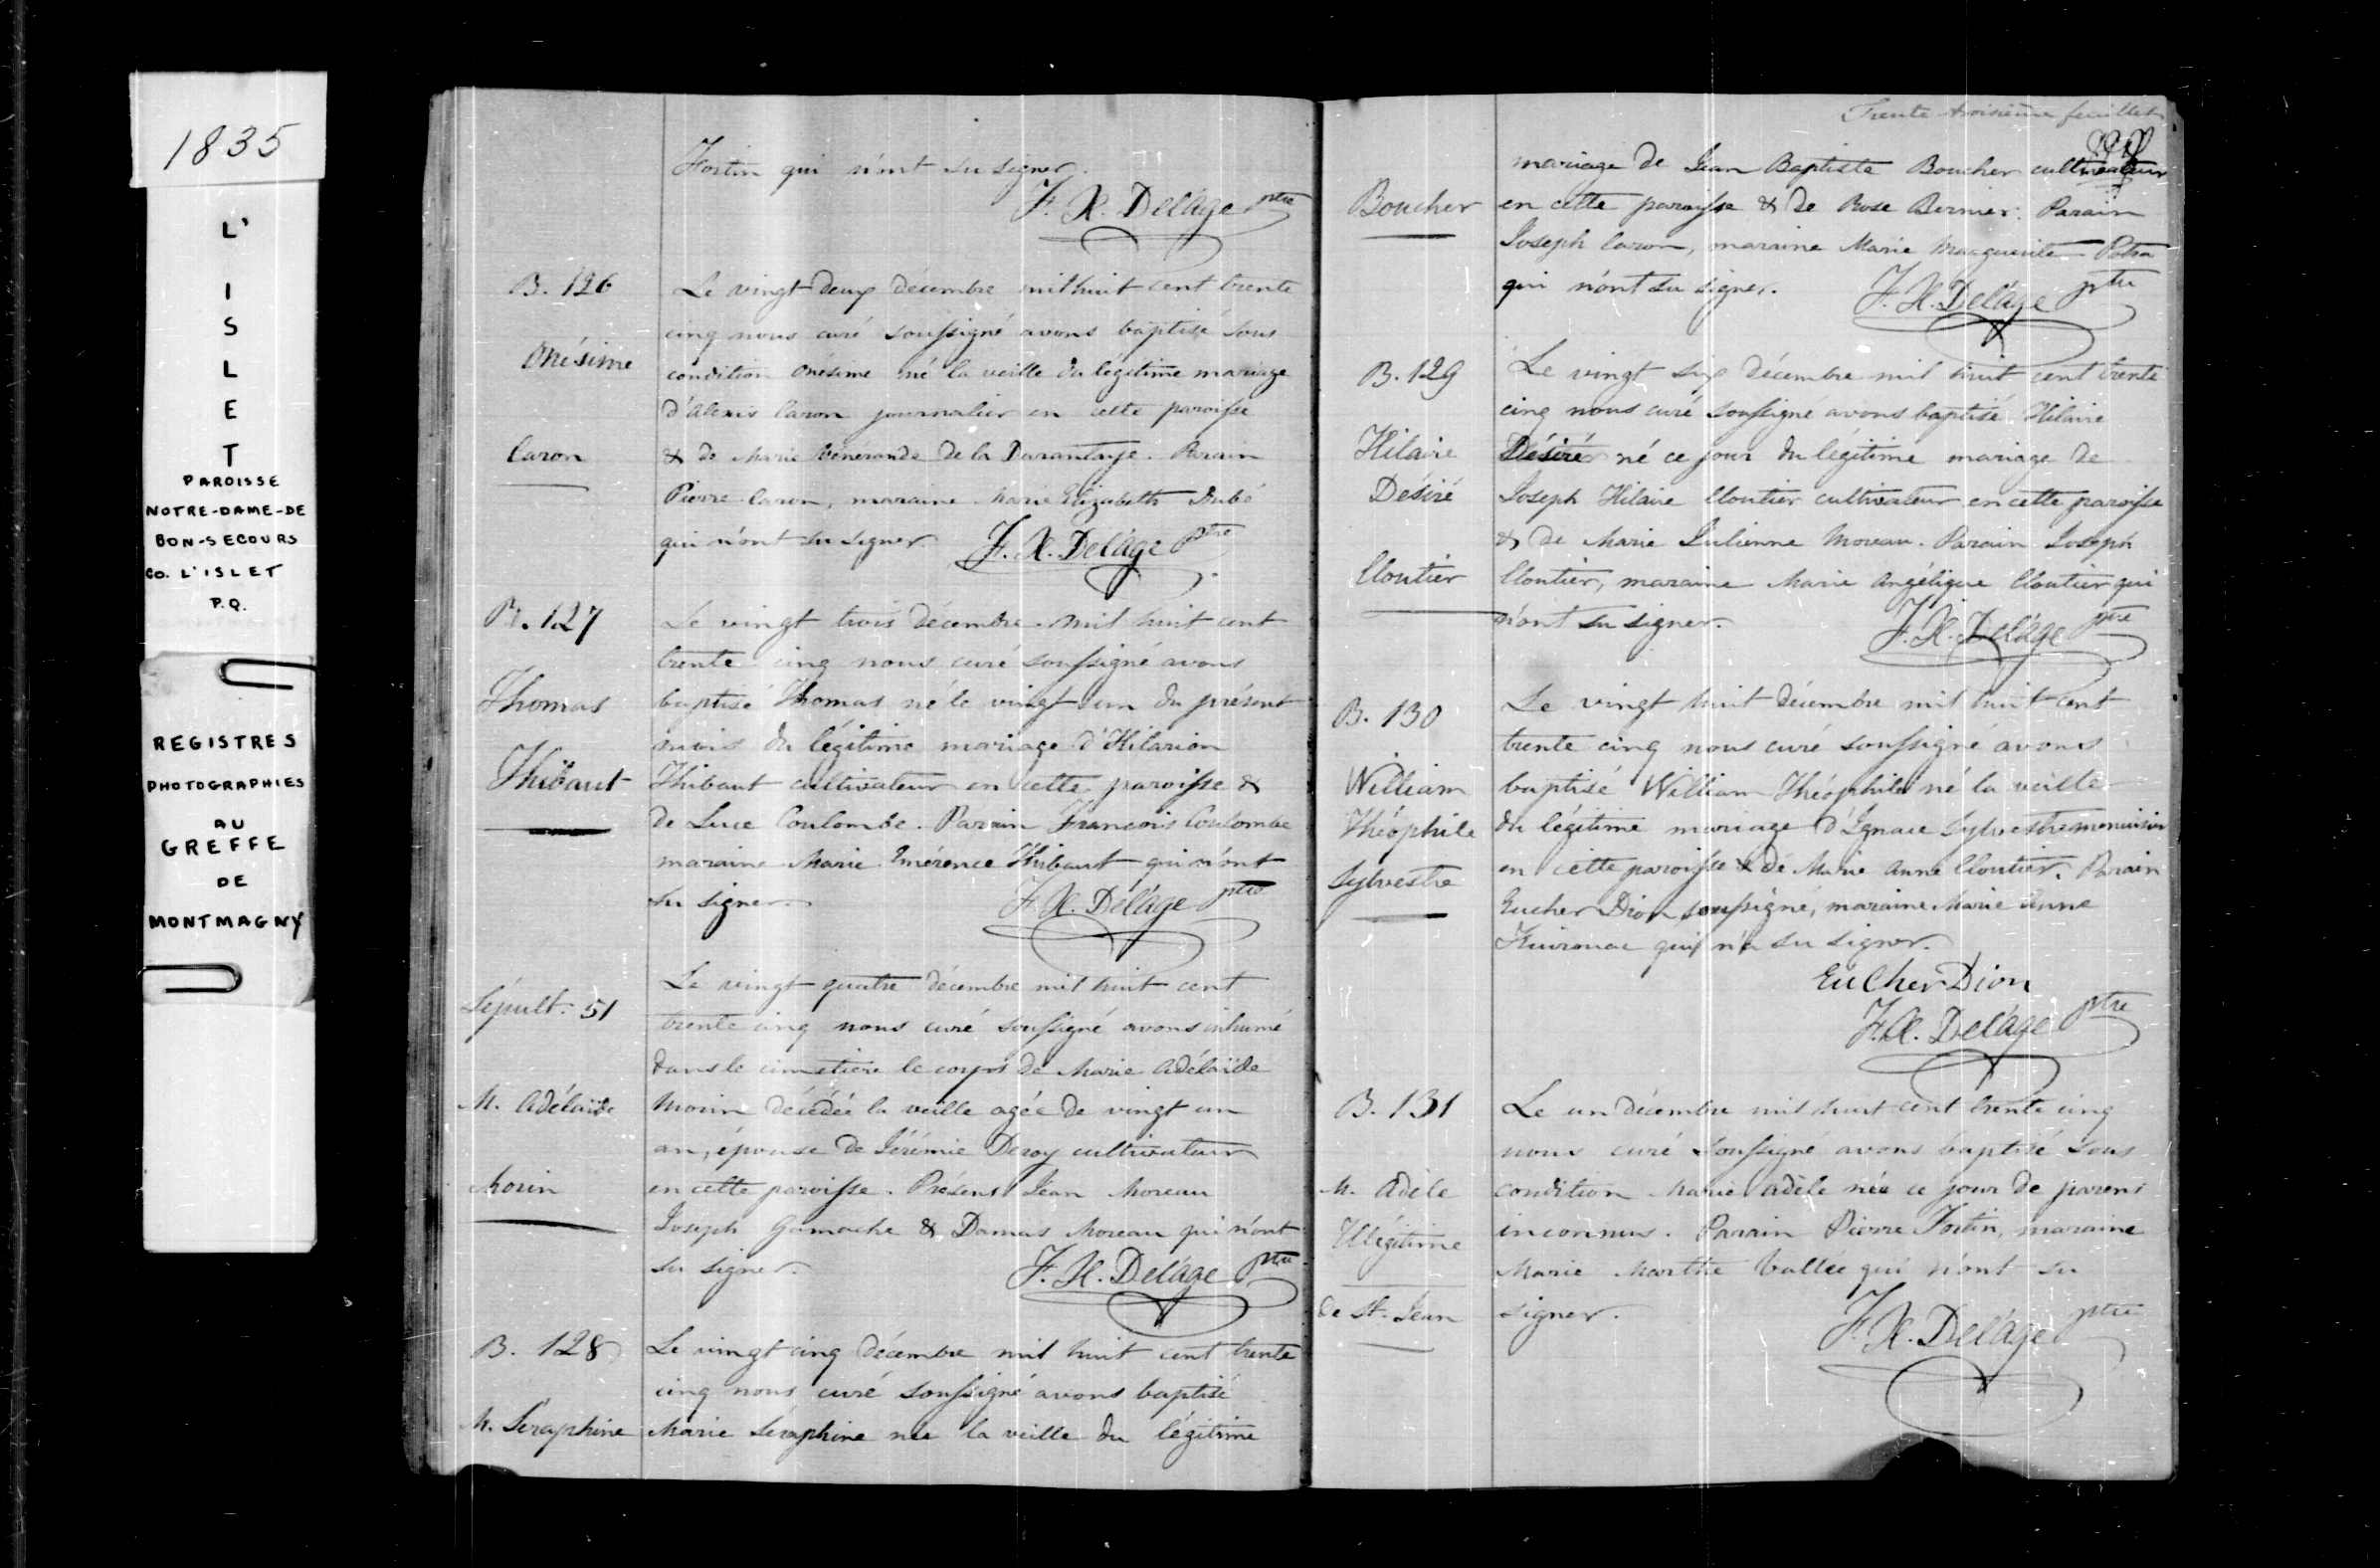 1835
L'
I
S
L
E
T
PAROISSE
NOTRE-DAME-DE
BON-SECOURS
CO. L'ISLET
P.Q.
REGISTRES
PHOTOGRAPHIES
AU
GREFFE
DE
MONTMAGNY
Fortin qui n'ont su signer.
F. X. Delâge ptre
B. 126
Onésime
Caron
Le vingt deux décembre mil huit cent trente
cinq nous curé soussigné avons baptisé sous
condition Onésime né la veille du légitime mariage
d'Alexis Caron journalier en cette paroisse
& de Marie Vénérande de la Durantaye. Parain
Pierre Caron, maraine Marie Elizabeth Dubé
qui n'ont su signer. F. X. Delâge ptre
B. 127
Thomas
Thibaut
Le vingt trois décembre mil huit cent
trente cinq nous curé soussigné avons
baptisé Thomas né le vingt un du présent
mois du légitime mariage d'Hilarion
Thibaut cultivateur en cette paroisse &
de Luce Coulombe. Parain François Coulombe
maraine Marie Emérence Thibaut qui n'ont
su signer. F. X. Delâge ptre
Sépult. 51
M. Adélaïde
Morin
Le vingt quatre décembre mil huit cent
trente cinq nous curé soussigné avons inhumé
dans le cimetière le corps de Marie Adélaïde
Morin décédée la veille agée de vingt un
an, épouse de Jérémie Deroy cultivateur
en cette paroisse. Présens Jean Moreau
Joseph Gamache & Damas Moreau qui n'ont
su signer. F. X. Delâge ptre
B. 128
M. Séraphine
Le vingt cinq décembre mil huit cent trente
cinq nous curé soussigné avons baptisé
Marie Séraphine née la veille du légitime
Trente troisième feuillet
Boucher
mariage de Jean Baptiste Boucher cultivateur
en cette paroisse & de Rose Bernier. Parain
Joseph Caron, maraine Marie Marguerite
qui n'ont su signer. F. X. Delâge ptre
B. 129
Hilaire
Désiré
Cloutier
Le vingt six décembre mil huit cent trente
cinq nous curé soussigné avons baptisé Hilaire
Désiré né ce jour du légitime mariage de
Joseph Hilaire Cloutier cultivateur en cette paroisse
& de Marie Julienne Moreau. Parain Joseph
Cloutier, maraine Marie Angélique Cloutier qui
n'ont su signer. F. X. Delâge ptre
B. 130
William
Théophile
Sylvestre
Le vingt huit décembre mil huit cent
trente cinq nous curé soussigné avons
baptisé William Théophile né la veille
du légitime mariage d'Ignace Sylvestre menuisier
en cette paroisse & de Marie Anne Cloutier. Parain
Eucher Dion soussigné, maraine Marie Anne
qui n'a su signer.
Eucher Dion
F. X. Delâge ptre
B. 131
M. Adèle
Illégitime
de St. Jean
Le un décembre mil huit cent trente cinq
nous curé soussigné avons baptisé sous
condition Marie Adèle née ce jour de parens
inconnus. Parain Pierre Fortin, maraine
Marie Marthe Vallée qui n'ont su
signer. F. X. Delâge ptre